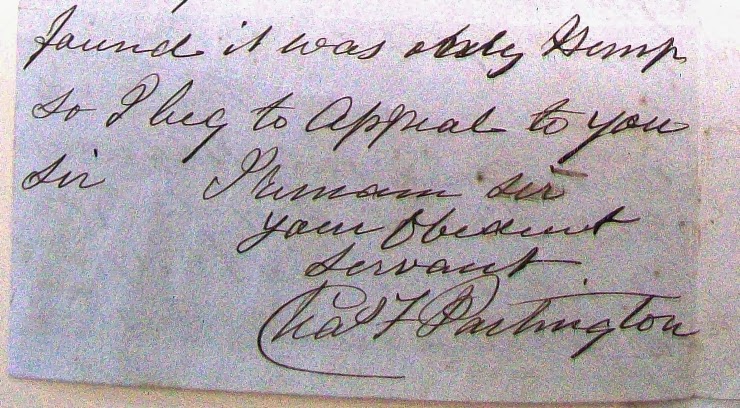 found it was only Hemp
so I beg to Appeal to you
sir I remain sir
your Obedient
servant
Chas F Partington